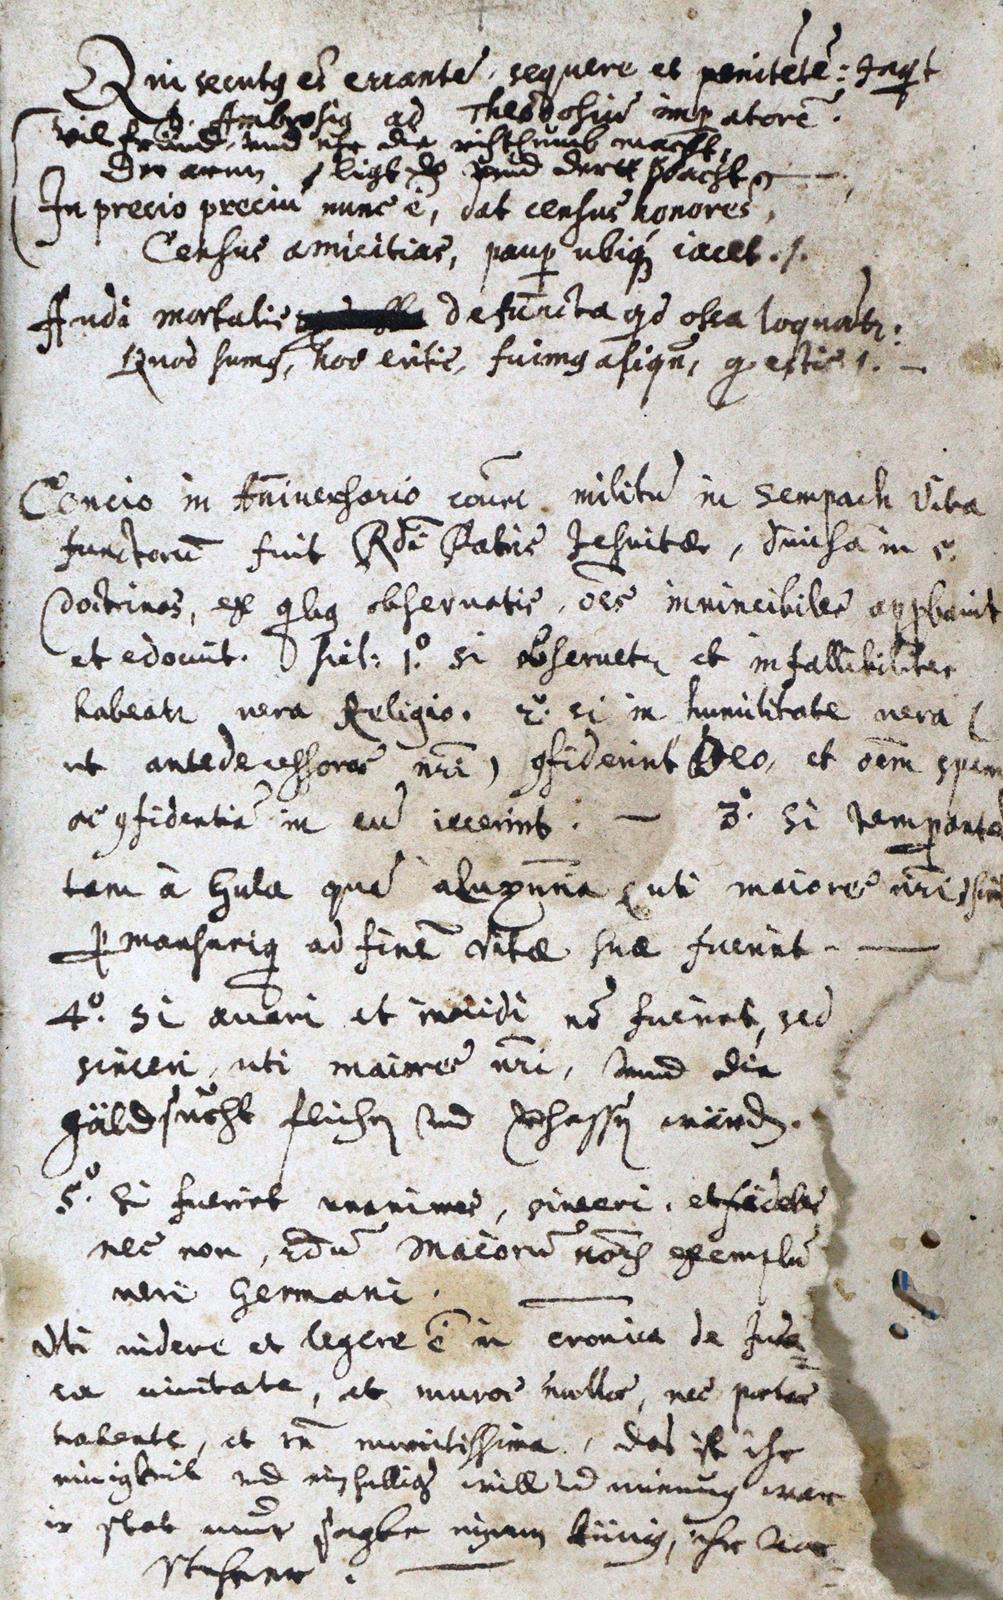 Qui secutus es errantē, sequere et penitētē: Inquit
S. Ambrosius ad Theodosiū impatorē.
vil fründ, und ehr die richthumb macht,
Der arm ligt und wird veracht
In precio preciū nunc ē, dat census honores,
Census amicitias, paup ubiq iacet.
Audi mortalis defuncta qd ossa loquātr:
Quod sumus, hoc eritis, fuimus aliqn, q estis.
Concio in Aniversario militū in Sempach vita
functorū fuit Rdi Patris Jesuitae, divisa in 5
doctrinas, ex qbus observatis, oēs invincibiles
et edocuit. Scil: 1.° Si observetr et infallibiliter
habeatr vera Religio. 2.° Si in humilitate vera (
ut antedecessores nri) gfiderint Deo, et oēm spem
ac gfidentiā in eū iecerint. — 3.° Si temperante
tam à Gula quā (uti maiores nri
pmansuriq ad finē vitae suae fuerint —
4.° Si avari et invidi nō fuerint, sed
sinceri, uti maiores nri, unnd die
gäldsucht fliehen und verhassen würden.
5.° Si fuerint unanimes, sinceri, et fideles
nec non, maiorū exemplū
veri Germani.
Uti videre et legere ē in cronica de
civitate, et muros nullos, nec portas
habente, et tn munitissima, das ist ihr
einigkeit und einhelliger will und meinung war
ir stat mur sagte einem künig,